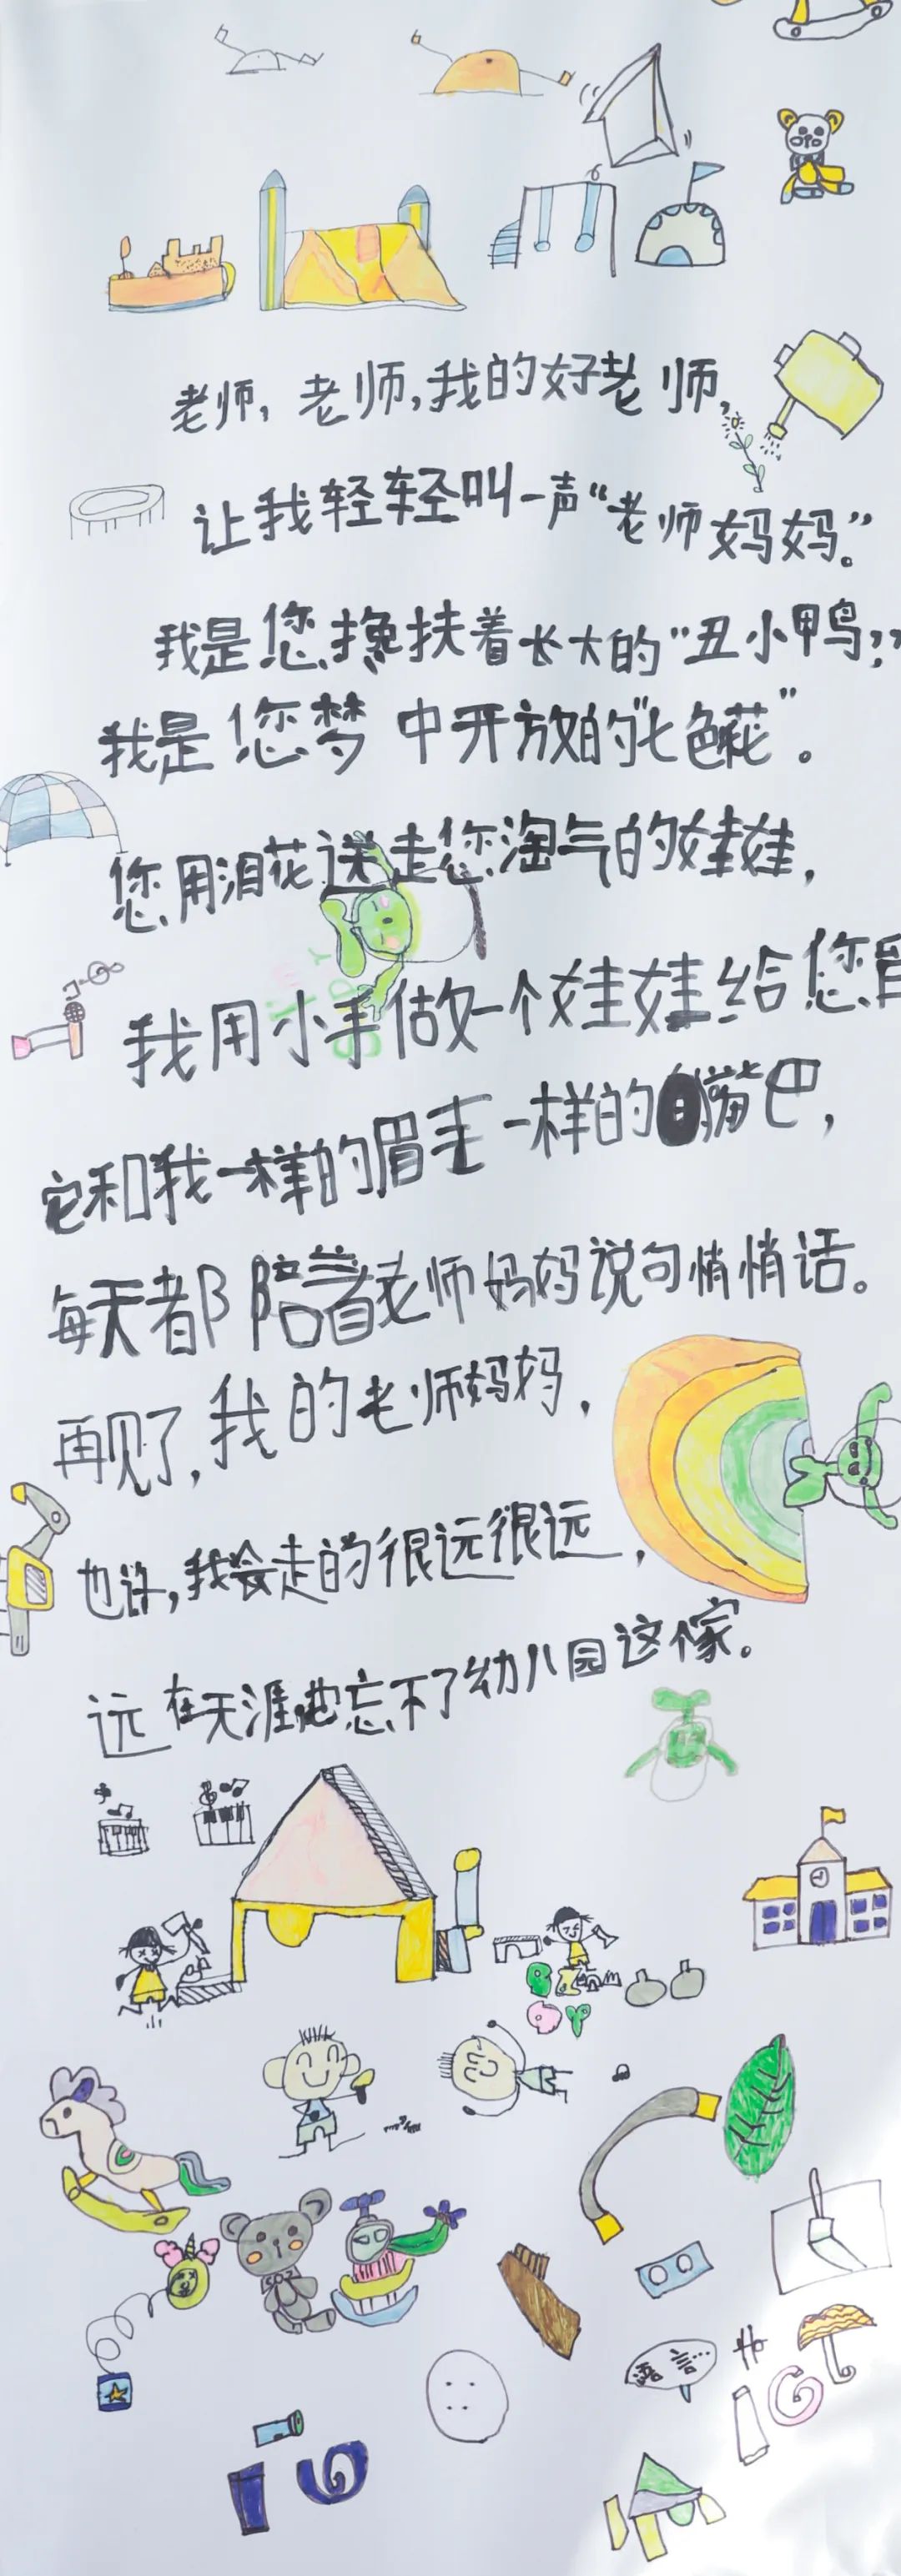 老师，老师，我的好老师，
让我轻轻叫一声“老师妈妈。”
我是您搀扶着长大的“丑小鸭，”
我是您梦中开放的“七色花”。
您用泪花送走您淘气的娃娃，
我用小手做一个娃娃给您留
它和我一样的眉毛一样的嘴巴，
每天都陪着老师妈妈说句悄悄话。
再见了，我的老师妈妈，
也许，我会走的很远很远，
远在天涯也忘不了幼儿园这个家。
语言…